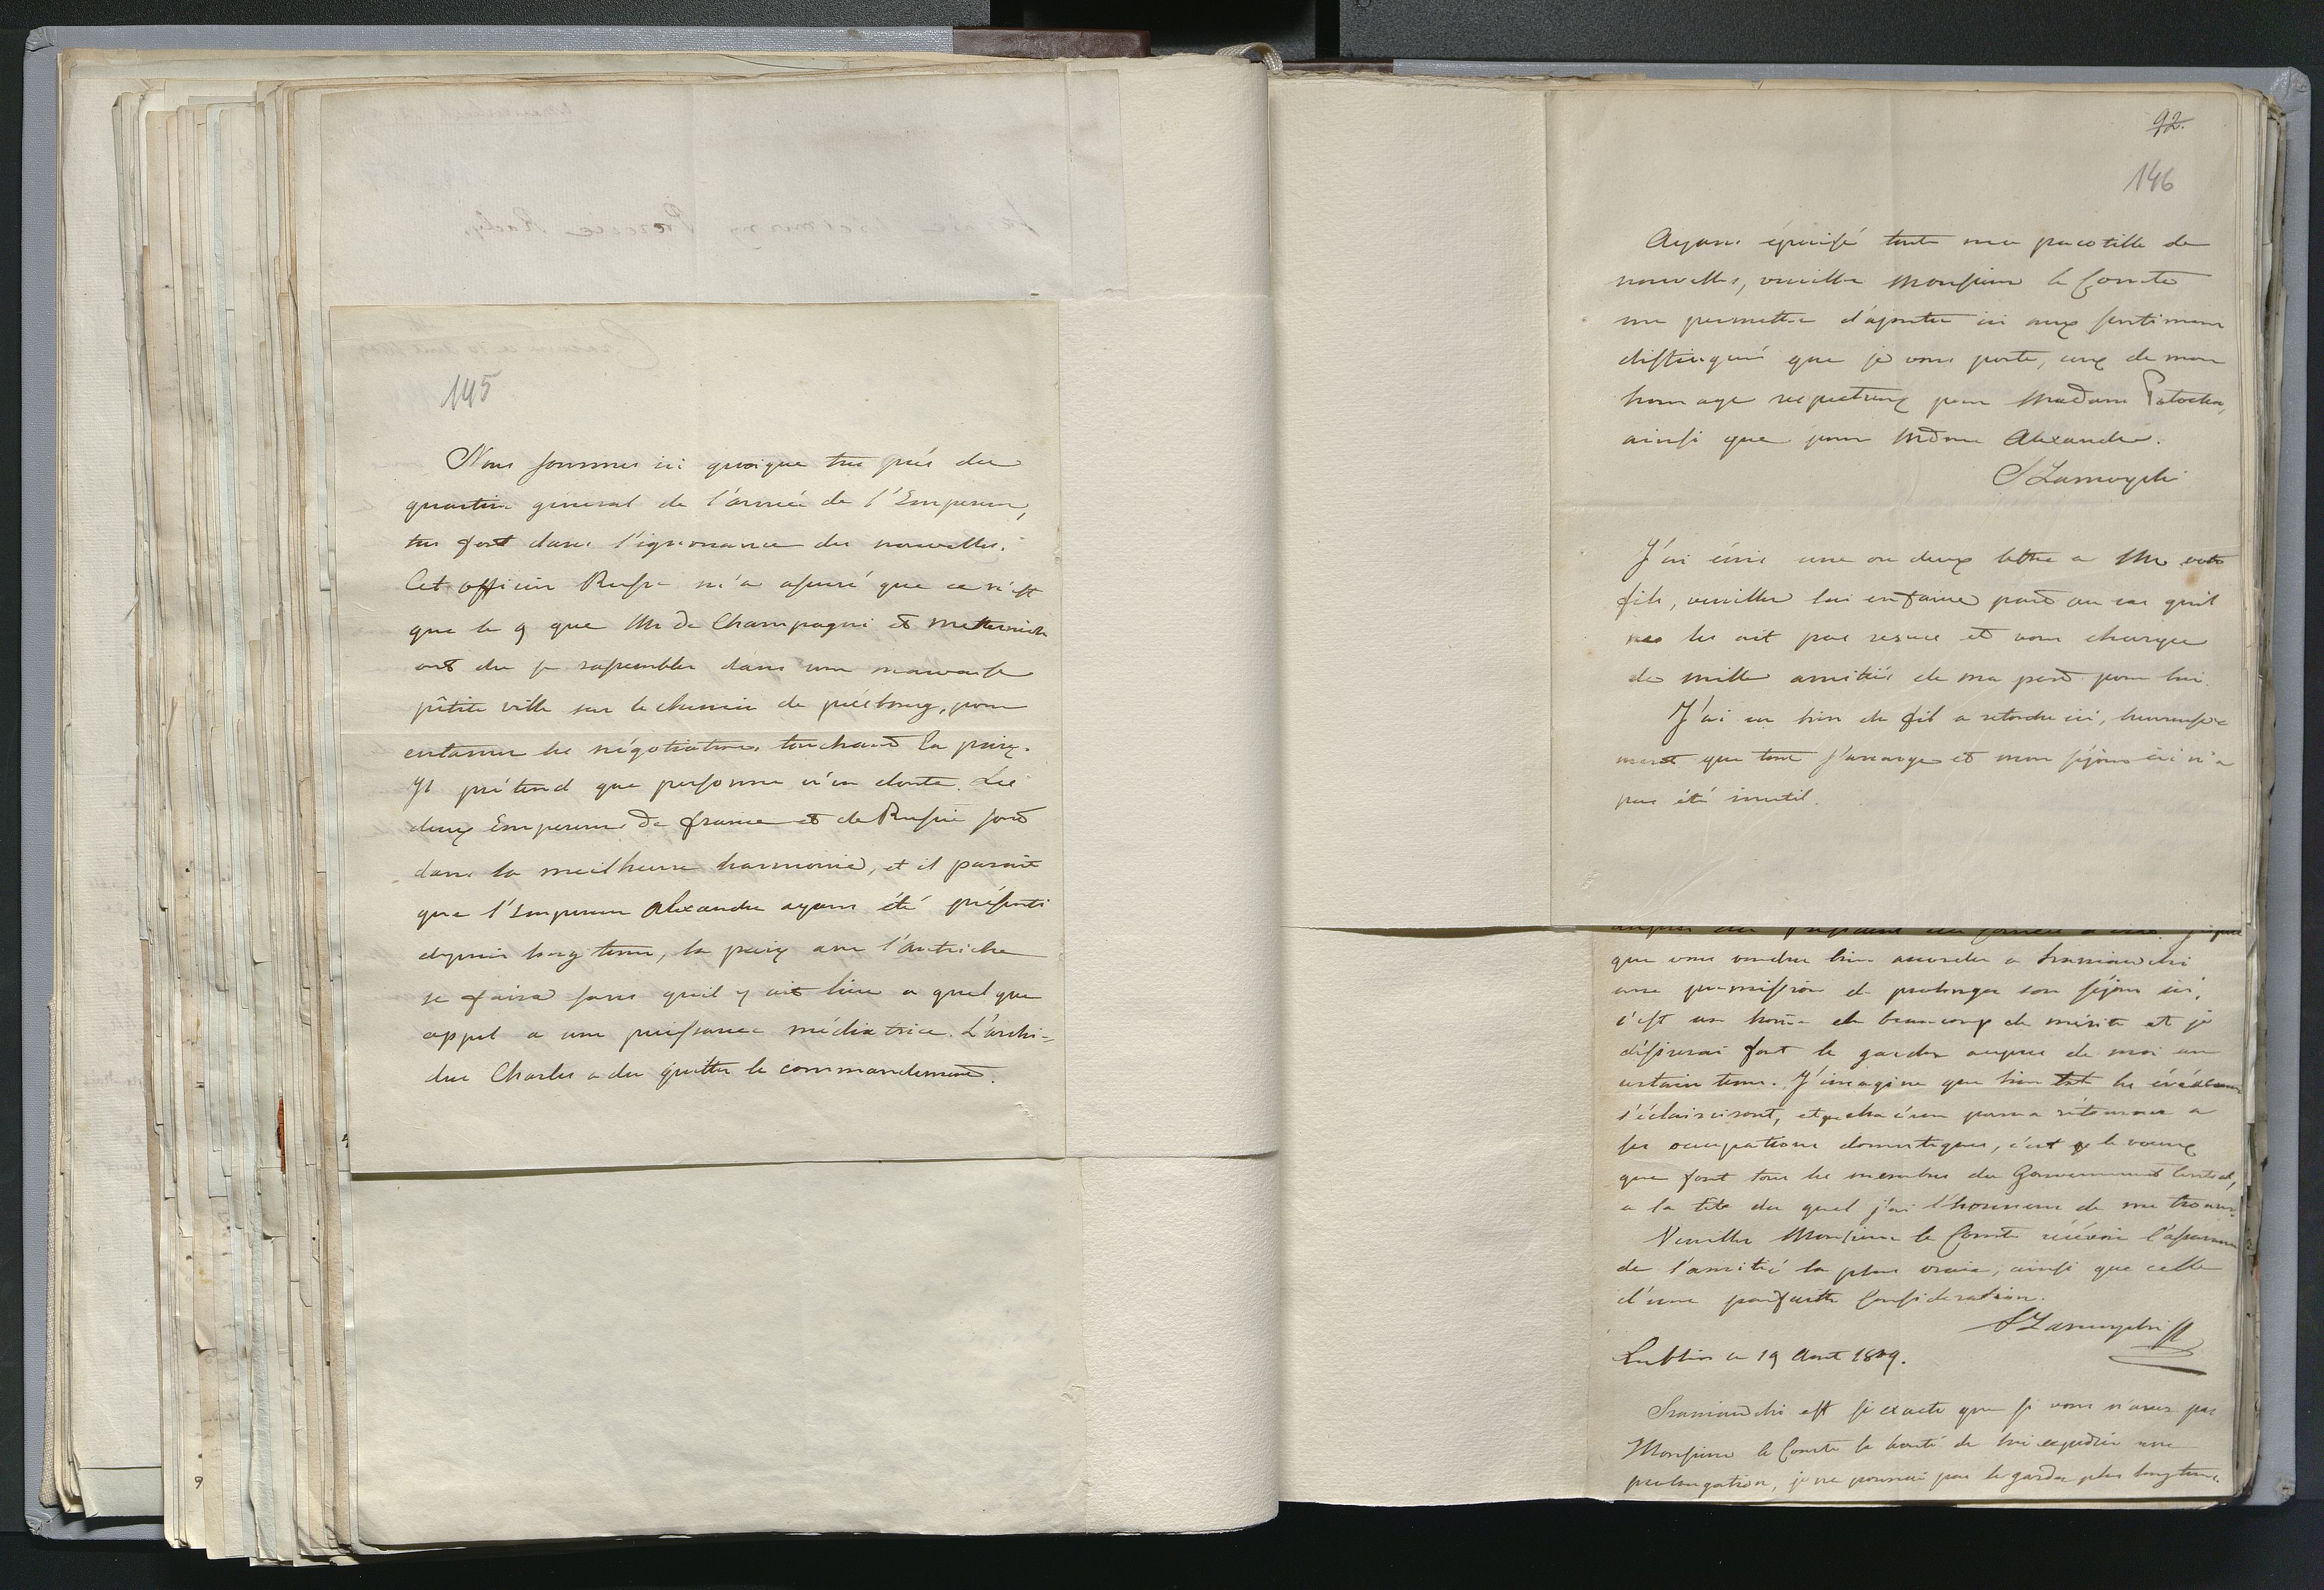 145
Nous sommes ici quoique tres près du
quartier general de l'armée de l'Empereur,
tres fort dans l'ignorance des nouvelles.
Cet officier Russe m'a assuré que ce n'est
que le 9 que Mr de Champagni et Metternich
ont du se rassembler dans une mauvaise
pétite ville sur le chemin de présbourg, pour
entamer les négotiations touchant la paix.
Il prétend que personne n'en doute. Les
deux Empereurs de france et de Russie sont
dans la meilheure harmonie, et il parait
que l'Empereur Alexandre ayant été présenti
depuis long tems, la paix avec l'autriche
se faira sans quil y ait lieu a quelque
appel a une puissance médiatrice. L'archi=
duc Charles a du quitter le commandement.
92.
146
Ayant épuisé toute ma pacotille de
nouvelles, veuillez Monsieur le Comte
me permettre d'ajouter ici aux sentimens
distingués que je vous porte, ceux de mon
homage respectueux pour Madame Potocka,
ainsi que pour Mdme Alexandre.
SZamoyski
J'ai écris une ou deux lettre a Mr votre
fils, veuillez lui en faire part au cas quil
ne les ait pas resue et vous charger
de mille amitiés de ma part pour lui.
J'ai eu bien de fil a retordre ici, heureuse
ment que tout s'arrange et mon séjour ici n'a
pas été inutil.
que vous voudrez bien accorder a Sraniawski
une permission de prolonger son séjour ici,
c'est un home de beaucoup de mérite et je
désirerai fort le garder aupres de moi un
certain tems. J'imagine que bien tot les événemens
s'éclairciront, et que chacun pourra rétourner a
ses occupations domestiques, c'est le voeux
que font tous les membres du Gouvernement Central,
a la tête du quel j'ai l'honneur de me trouver.
Veuillez Monsieur le Comte récévoir l'assurance
de l'amitié la plus vraie, ainsi que celle
d'une parfaite Consideration.
SZamoyski
Lublin ce 19 Aout 1809.
Sraniawski est si exacte que si vous n'avez pas
Monsieur le Comte la bonté de lui expedier une
prolongation, je ne pourrai pas le garder plus longtems.